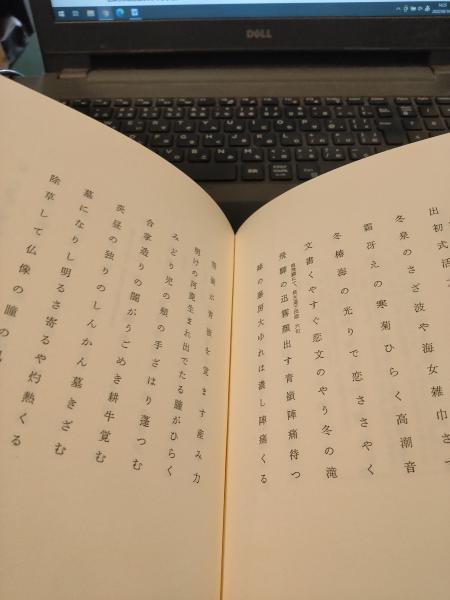 DELL
出初式
冬泉のさざ波や海女雑巾さ
霜冴えの寒菊ひらく高潮音
冬椿海の光りで恋ささやく
文書くやすぐ恋文のやう冬の滝
飛騨の迅雲顔出す青嶺陣痛待つ
藤の藤房大ゆれは濃し陣痛くる
青嶺を覚ます産み力
明けの河鹿生まれ出でたる瞳がひらく
みどり児の頬の手ざはり蓬つむ
合掌造りの闇がうごめき耕牛覚む
炎昼の独りのしんかん墓きざむ
墓になりし明るさ寄るや灼熱くる
除草して仏像の瞳の